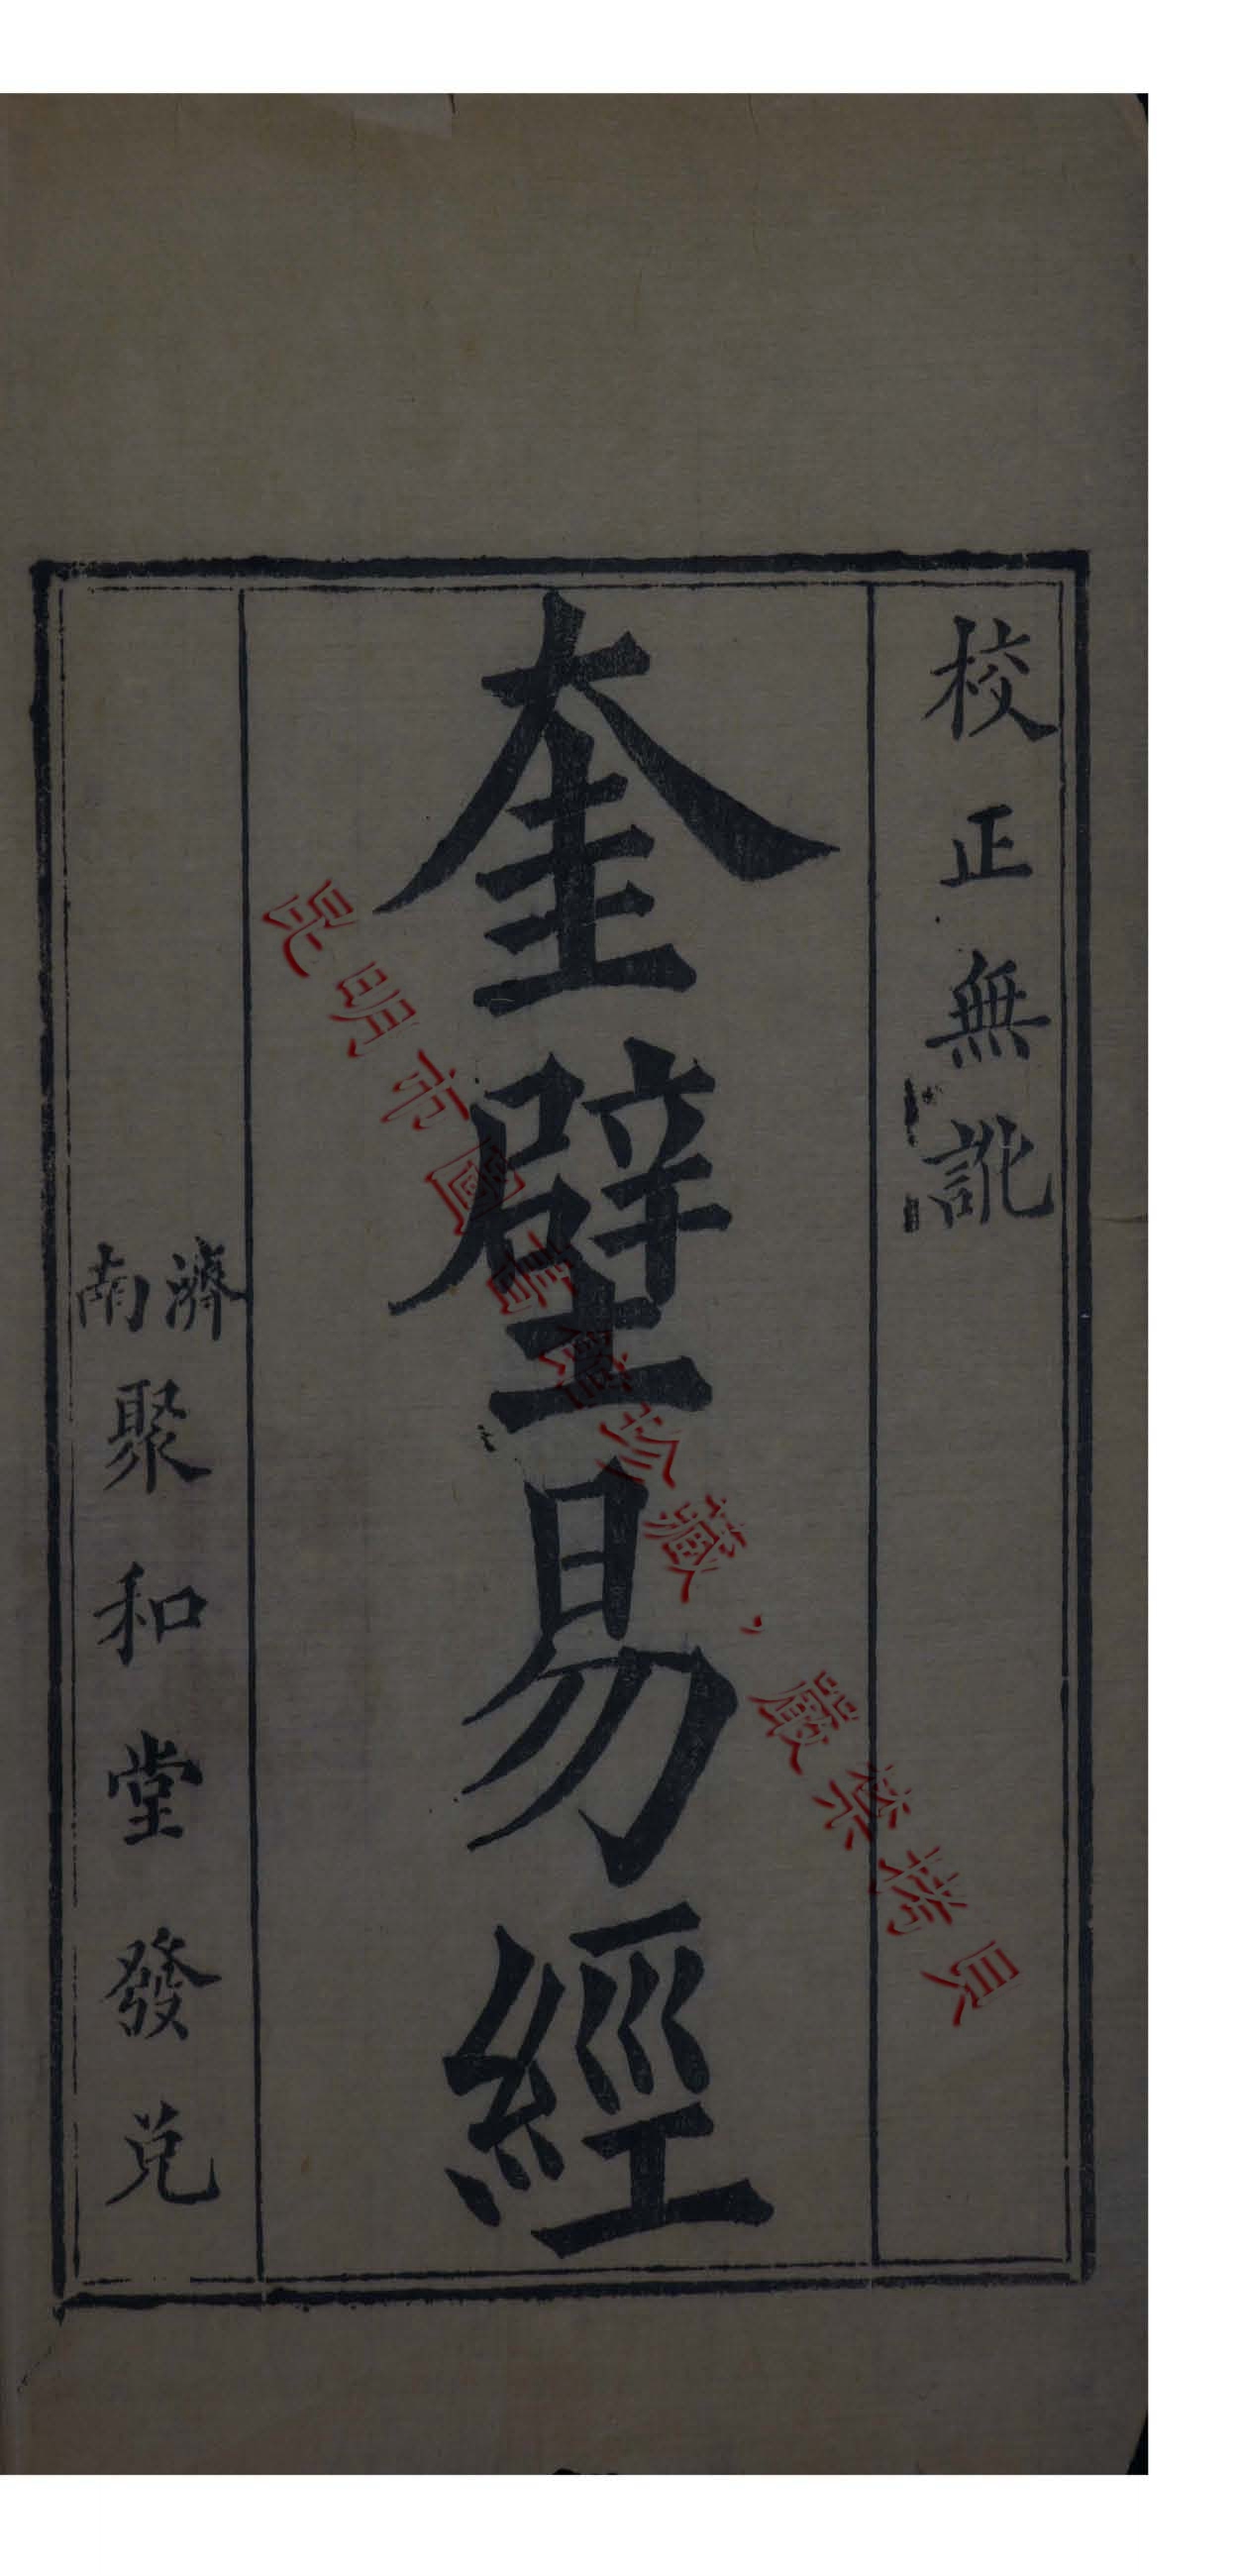 校正無訛
奎壁易經
濟南聚和堂發兌
昆明市圖書館珍�，嚴禁拷貝